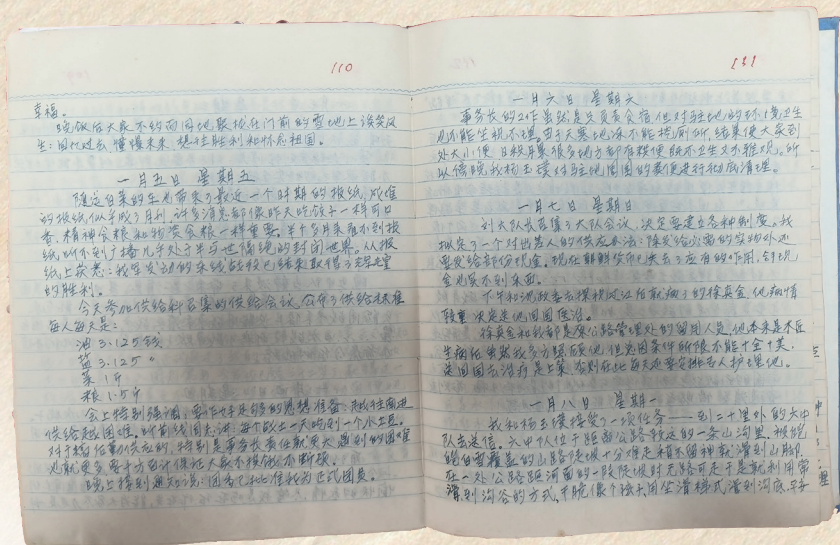 110
幸福。
晚饭后大家不约而同地聚拢在门前的雪地上谈笑风
生：回忆过去 憧憬未来 想往胜利和怀念祖国。
一月五日 星期五
随运白菜的车也带来了最近一个时期的报纸，成堆
的报纸似乎成了月刊 许多消息都像昨天吃饺子一样可口
香，精神食粮和物资食粮一样重要。半个多月来看不到报
纸听不到广播几乎处于半与世隔绝的封闭世界。从报
纸上获悉：我军发动的东线战役已结束取得了完全
的胜利。
今天参加供给科召集的供给会议，公布了供给标准
每人每天是：
油 3.125钱
盐 3.125 〃
菜 1斤
粮 1.5斤
会上特别强调，要作好足够的思想准备：越往南进
供给越困难。听前线回来讲：每个战士一天吃到一个小土豆。
对于担任供应的，特别是事务长责任就更大 遇到的困难
也就更多 要千方百计保证人员不挨饿不断顿。
晚上接到通知说：团委已批准我为正式团员。
131
一月六日 星期六
事务长的工作虽然是只负责食宿 但对驻地的环境卫生
也不能坐视不理 由于天寒地冻不能挖厕所，结果使大家到
处大小便 日积月累很多地方都有粪便 既不卫生又不雅观。所
以傍晚我杨玉璞将驻地周围的粪便进行彻底清理。
一月七日 星期日
刘大队长召集了大队会议，决定要建立各种制度。我
拟定了一个对出差人的供应办法：除发给必需的实物外还
要发给部份现金。现在朝鲜货币已失去了应有的作用，有现
金也买不到东西。
下午和池政委去探视过江后就病了的徐真金，他病情
较重 决定送他回国医治。
徐真金和我都是原公路管理处的留用人员，他本来是木匠
生病后虽然我多方照顾他，但总因条件所限不能十全十美。
送回国去治疗是上策 否则在此每天还要安排专人护理他。
一月八日 星期一
我和杨玉璞接受了一项任务——到二十里外的六中
队去送信。六中队位于距离公路较远的一条山沟里，被皑
皑白雪覆盖的山路陡坡十分难走 稍不留神就滑到山脚，
在一处公路距河面的一段陡坡时无路可走 于是就利用常
滑到沟谷的方式，干脆像个孩子，用坐滑梯式滑到沟底，